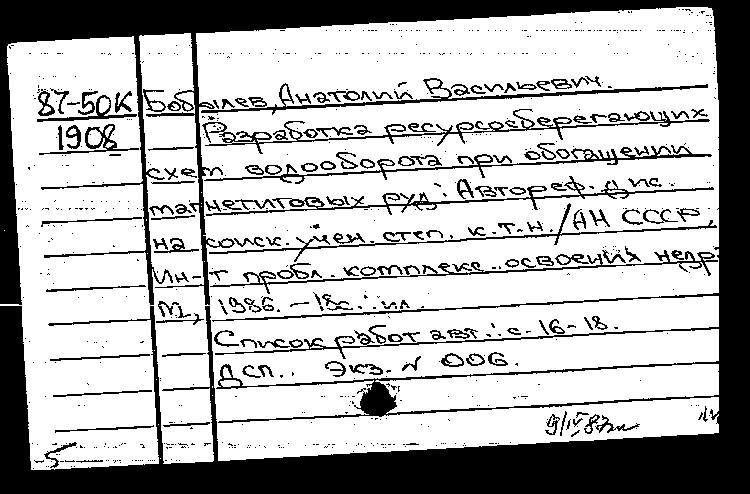 87-50К Бобылев, Анатолий Васильевич.
1908 Разработка ресурсосберегающих
схем водооборота при обогащении
магнетитовых руд: Автореф. дис.
на соиск. учен. степ. к.т.н. / АН СССР,
Ин-т пробл. комплекс. освоения недр.
М., 1986. - 18с.: ил.
Список работ авт.: с. 16-18.
ДСП.. Экз. N 006.
9/IV 87
5